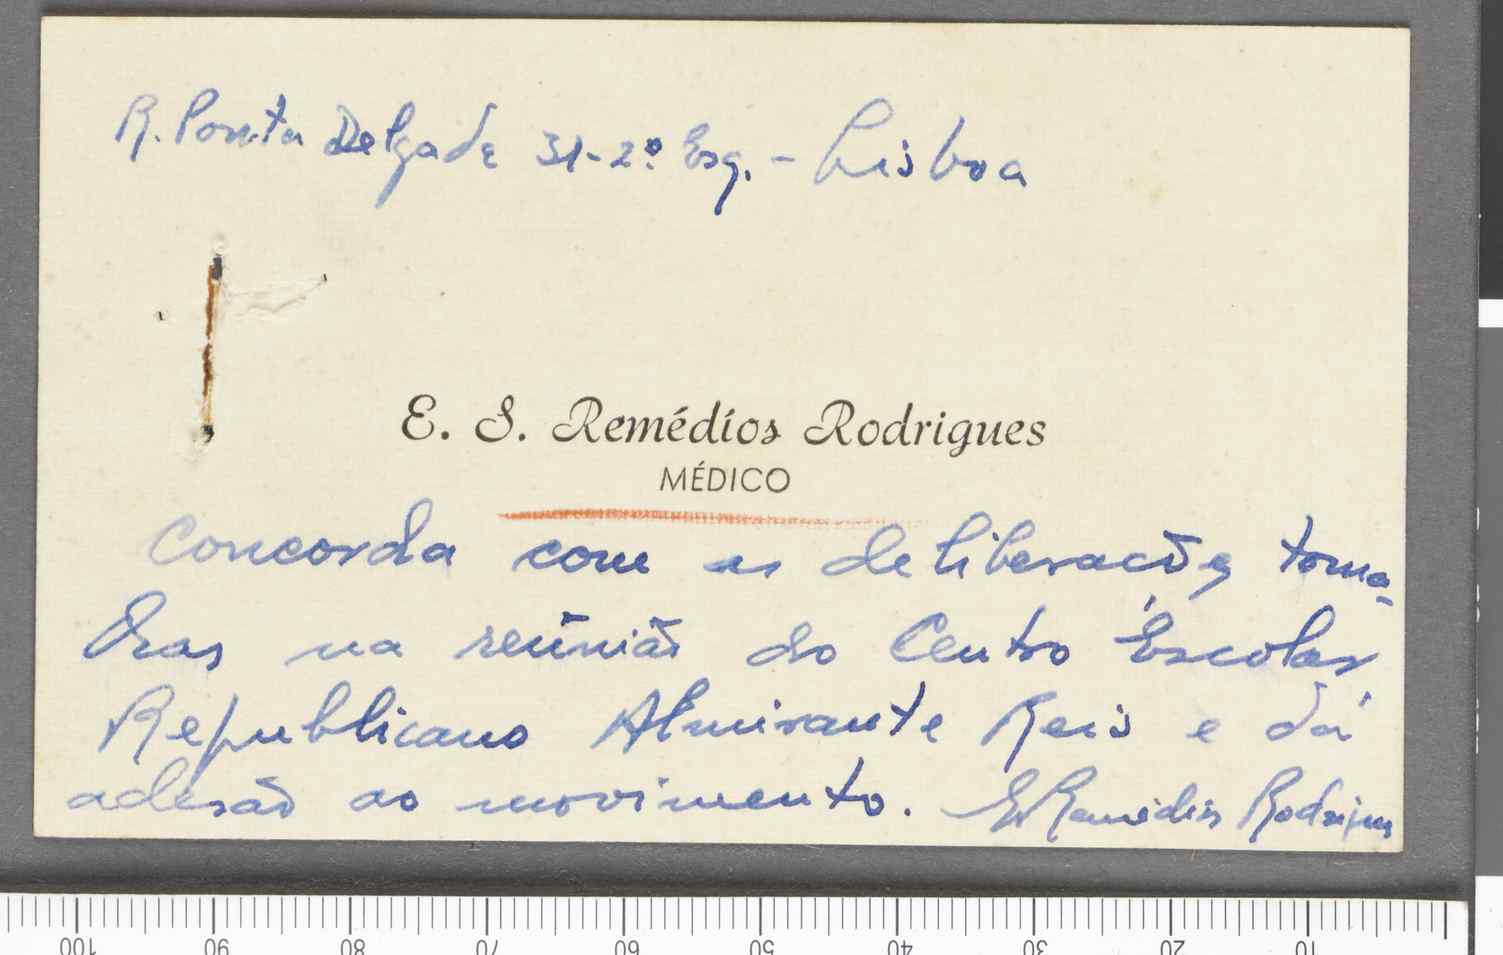 R. Ponta Delgada 31-2º Esq. - Lisboa
E. S. Remédios Rodrigues
MÉDICO
Concorda com as deliberações toma-
das na reünião do Centro Escolar
Republicano Almirante Reis e dá
adesão ao movimento. E Remédios Rodrigues
100 90 80 70 60 50 40 30 20 10